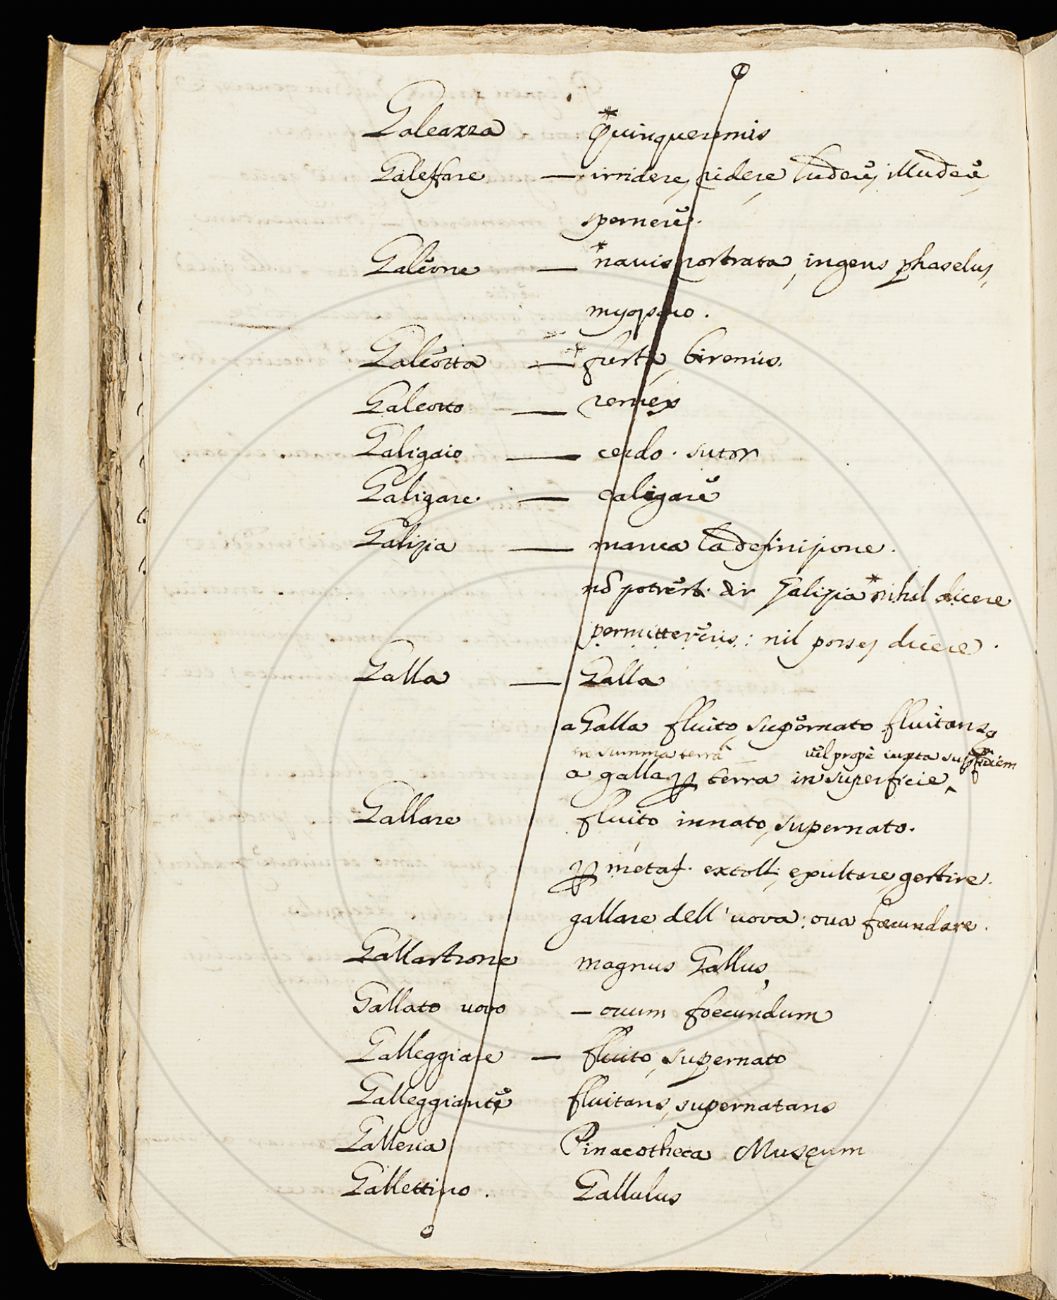 Galeazza *Quinqueremis
Galeffare — irridere, ridere ludere, illudere,
spernere.
Galeone — *navis rostrata, ingens phaselus,
myoparo.
Galeotta — * fusta, biremis.
Galeotto — remex
Galigaio — cerdo. sutor
Galigare. — caligare
Galizia — manca la definizione.
Galizia *nihil dicere
permitteretis: nil posses dicere.
Galla — Galla
a Galla fluito, supernato fluitans
in summa terra vel prope iuxta superficiem
a galla per terra in superficie
Gallare fluito innato, supernato.
per metaf. extolli, exultare, gestire.
gallare dell'uova: ova foecundare.
Gallastrone magnus Gallus,
Gallato uovo — ovum foecundum
Galleggiare — fluito, supernato
Galleggiante fluitans, supernatans
Galleria Pinacotheca Museum
Gallettino. Gallulus